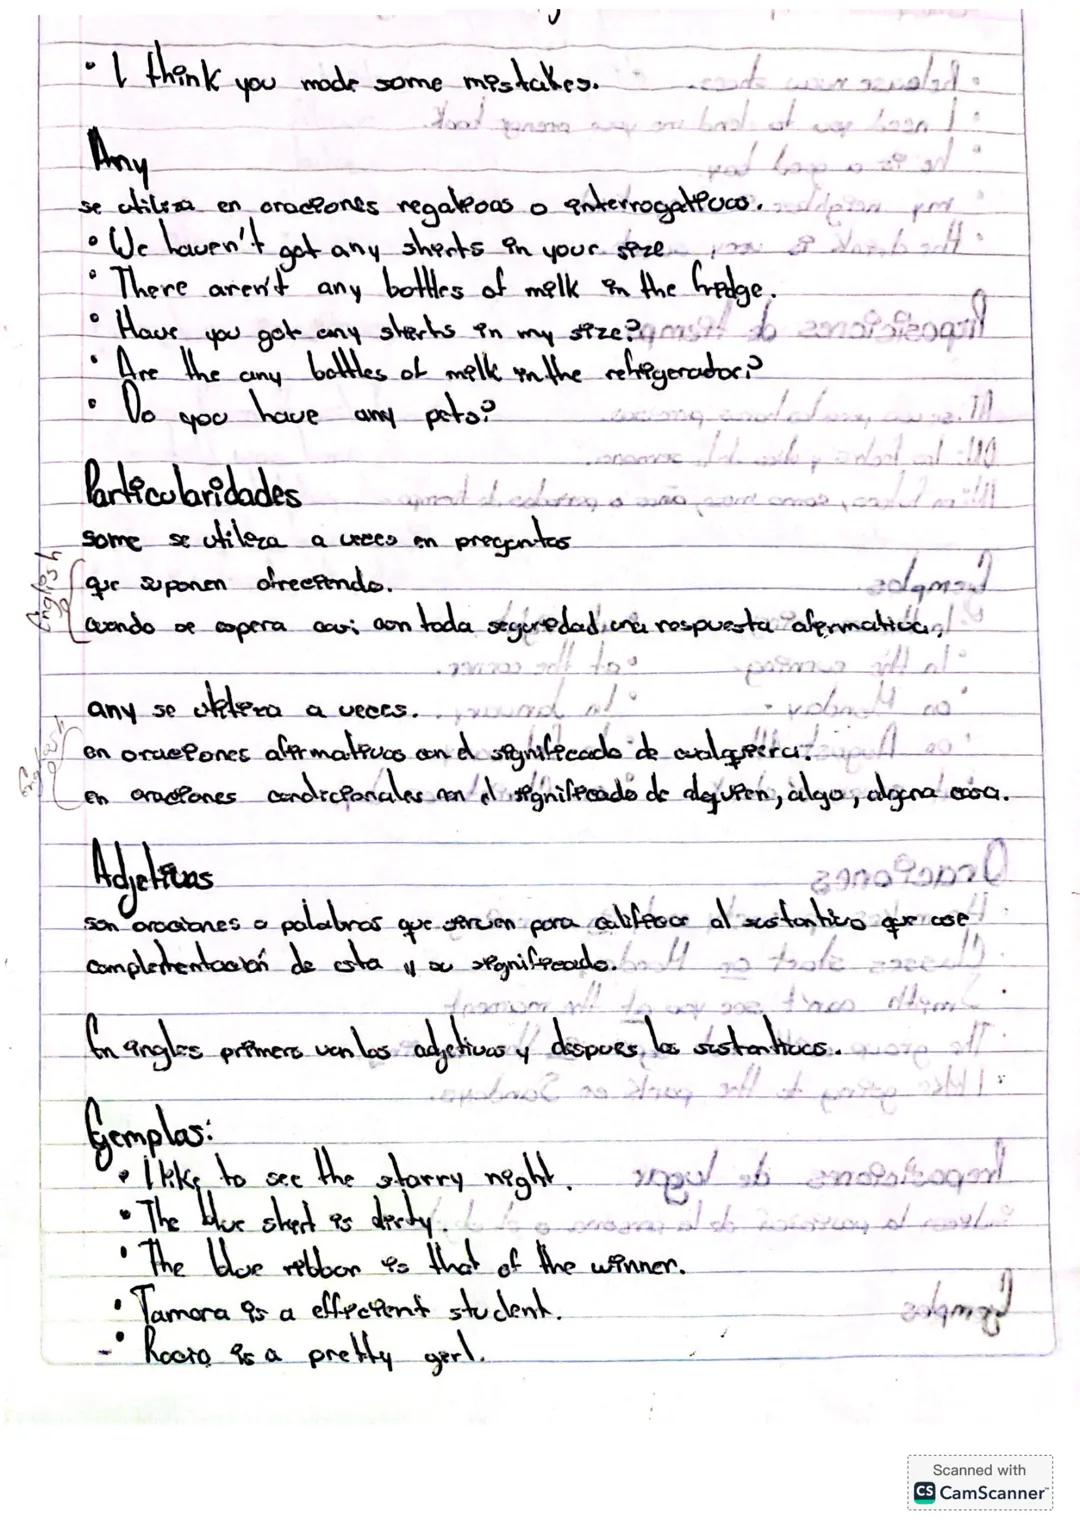 • I think you made some mistakes.
Any
se utiliza en oraciones negativas o interrogativas.
• We haven't got any shirts in your size
• There aren't any bottles of milk in the fridge.
• Have you got any shirts in my size?
• Are the any bottles of milk in the refrigerator?
• Do you have any pets?
Particularidades
some se utiliza a veces en preguntas
English
que suponen ofreciendo.
cuando se espera casi con toda seguridad una respuesta afirmativa.
any se utiliza a veces.
English
en oraciones afirmativas con el significado de cualquiera.
en oraciones condicionales con el significado de alguien, algo, alguna cosa.
Adjetivos
son oraciones o palabras que sirven para calificar al sustantivo que
complementación de esta y su significado.
En ingles primero van los adjetivos y despues los sustantivos.
Ejemplos:
• I like to see the starry night.
• The blue shirt is dirty.
• The blue ribbon is that of the winner.
• Tamara is a efficient student.
• Rocio is a pretty girl.
Scanned with
CS CamScanner